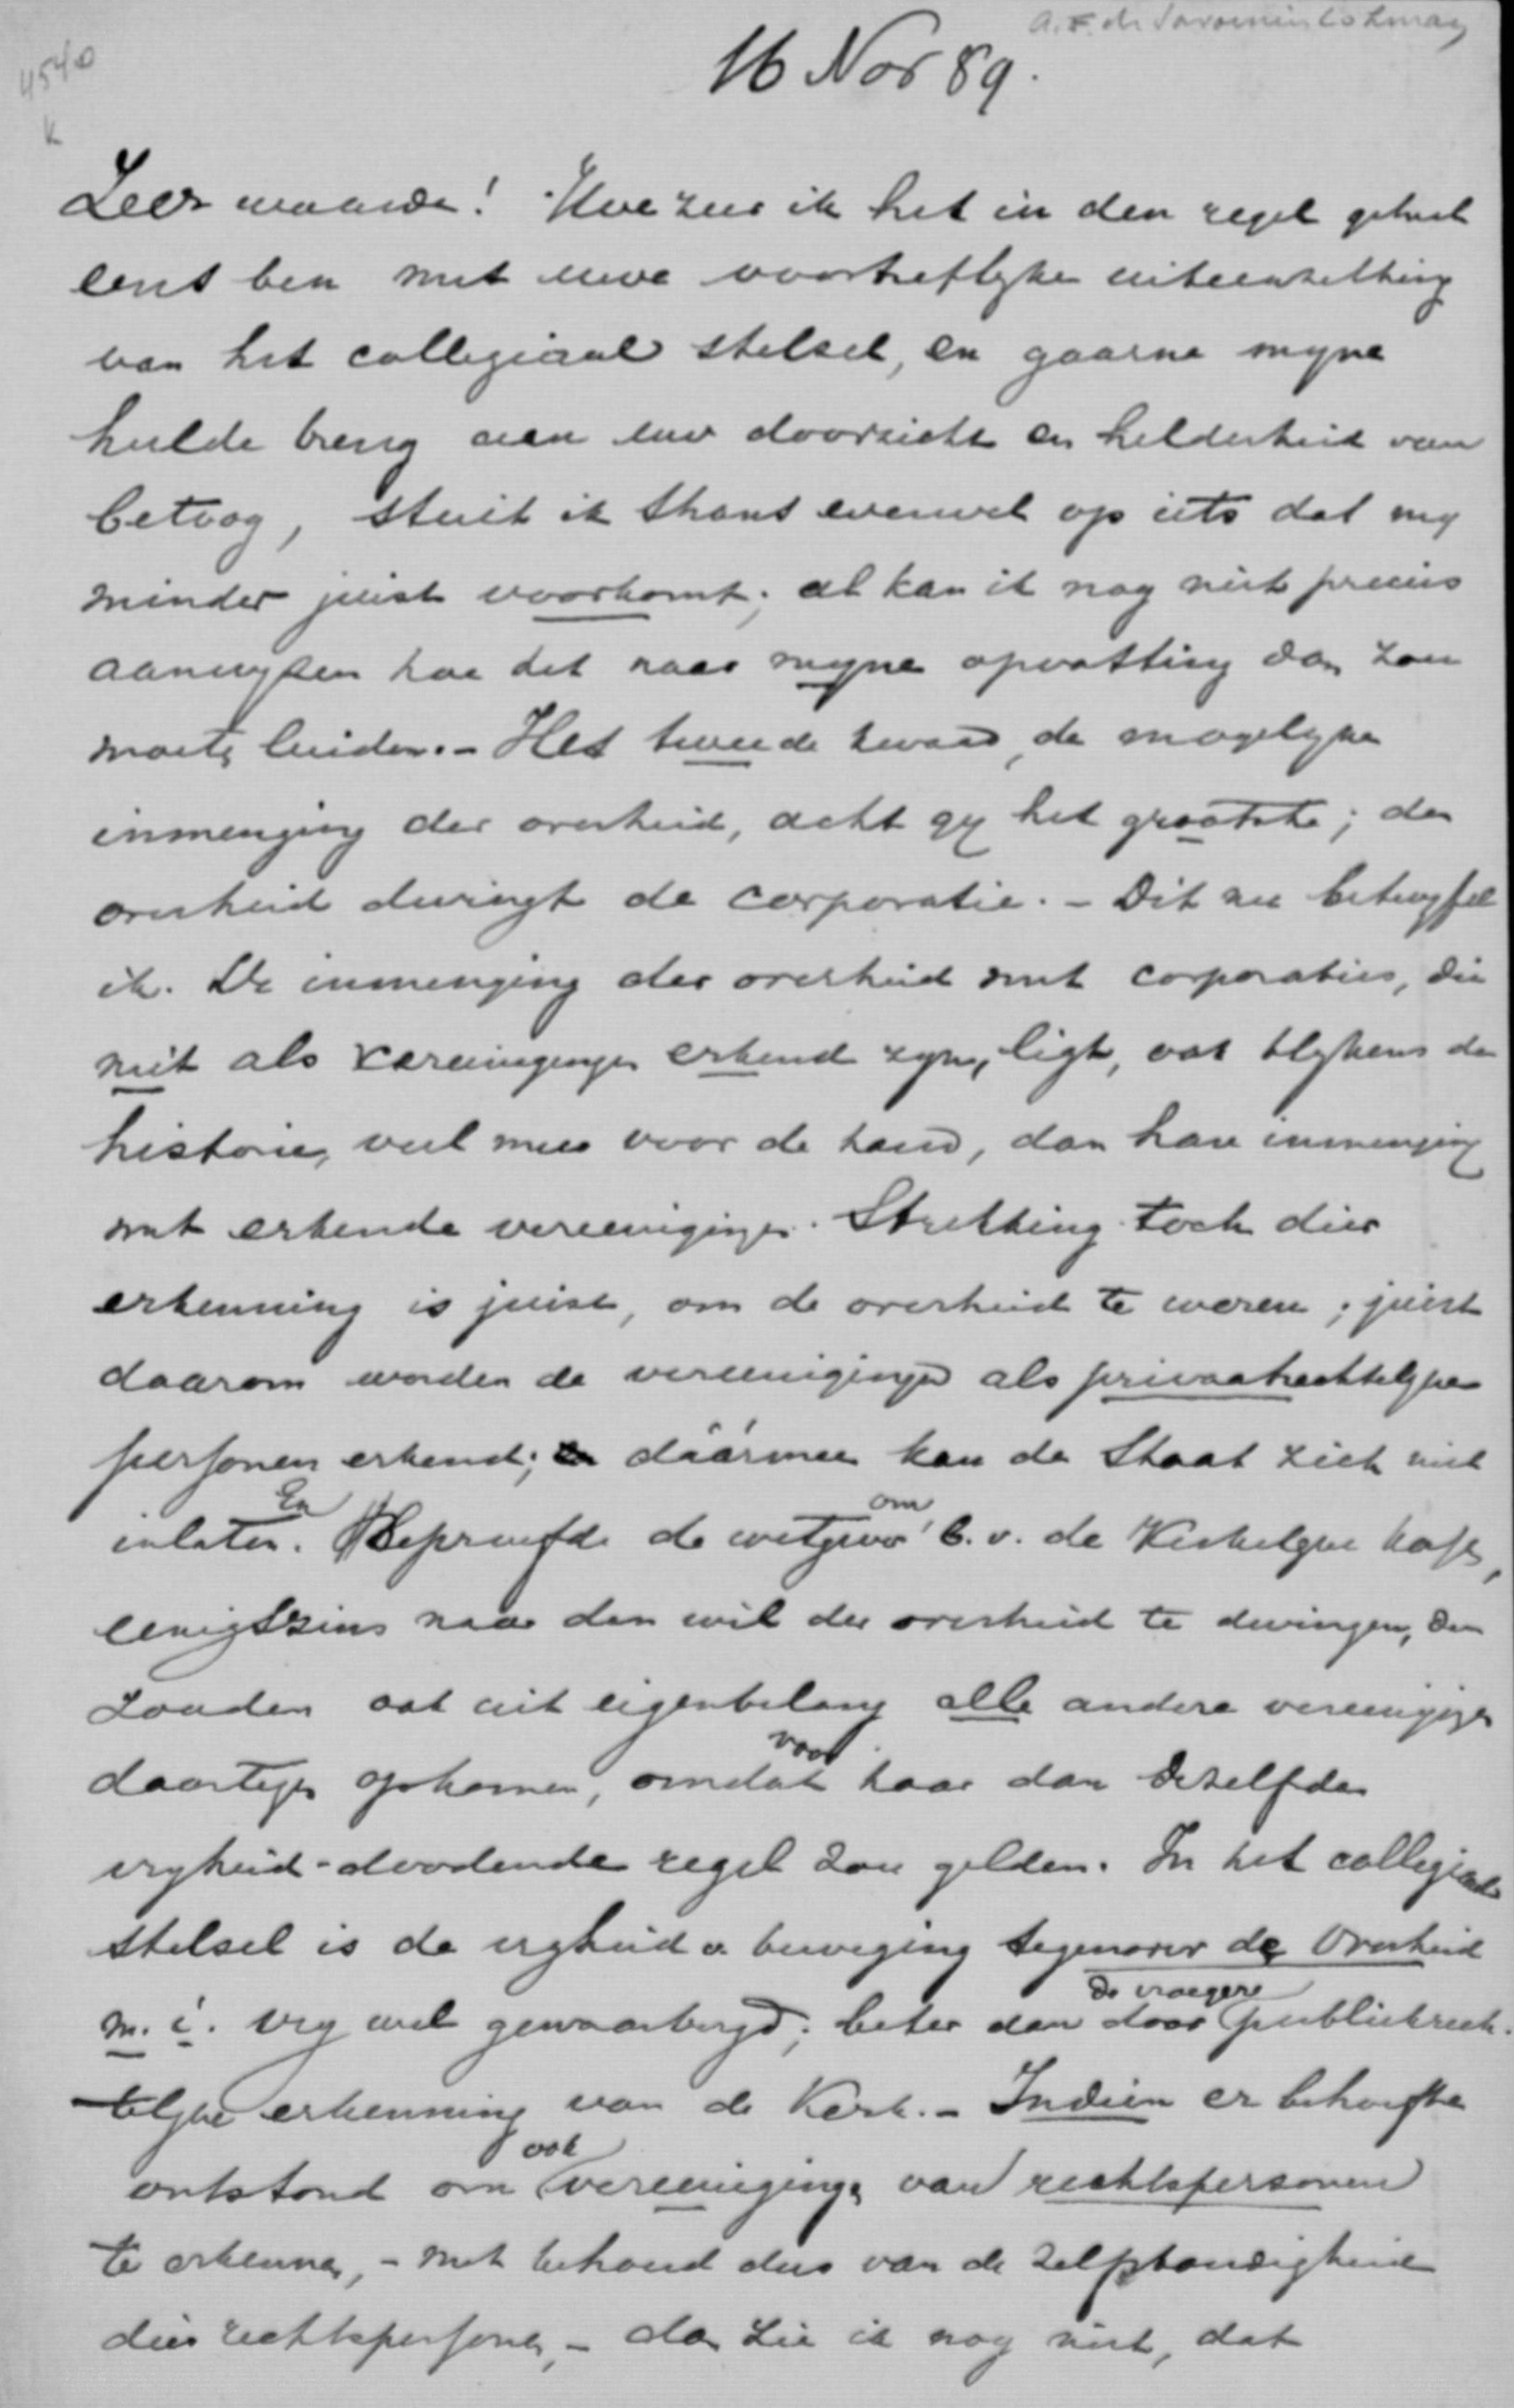 A.F. de Savornin Lohman
4540
k
16 Nov 89.
Zeer waarde! Hoe zeer ik het in den regel geheel
eens ben met uwe voortreflyke uiteenzetting
van het collegiaal stelsel, en gaarne myne
hulde breng aan uw doorzicht en helderheid van
betoog, stuit ik thans evenwel op iets dat my
minder juist voorkomt; al kan ik nog niet precies
aanwyzen hoe dit naar myne opvatting dan zou
moeten luiden. - Het tweede kwaad, de mogelyke
inmenging der overheid, acht gy het grootste; de
overheid dwingt de corporatie. - Dit nu betwyfel
ik. De inmenging der overheid met corporaties, die
niet als vereenigingen erkend zyn, ligt, ook blykens de
historie, veel meer voor de hand, dan hare inmenging
met erkende vereenigingen. Strekking toch dier
erkenning is juist, om de overheid te weren; juist
daarom worden de vereenigingen als privaatrechtelyke
personen erkend; dáármee kan de Staat zich niet
inlaten. En beproefde de wetgever om b.v. de Kerkelyke kas,
eenigszins naar den wil der overheid te dwingen, dan
zouden ook uit eigenbelang alle andere vereenigingen
daartegen opkomen, omdat voor haar dan dezelfde
vryheid-doodende regel zou gelden. In het collegiaal
stelsel is de vryheid v. beweging tegenover de Overheid
m. i. vry wel gewaarborgd; beter dan door de vroegere publiekrech-
telyke erkenning van de Kerk. - Indien er behoefte
ontstond om ook vereenigingen van rechtspersonen
te erkennen, - met behoud dus van de zelfstandigheid
dier rechtspersonen, - dan zie ik nog niet, dat